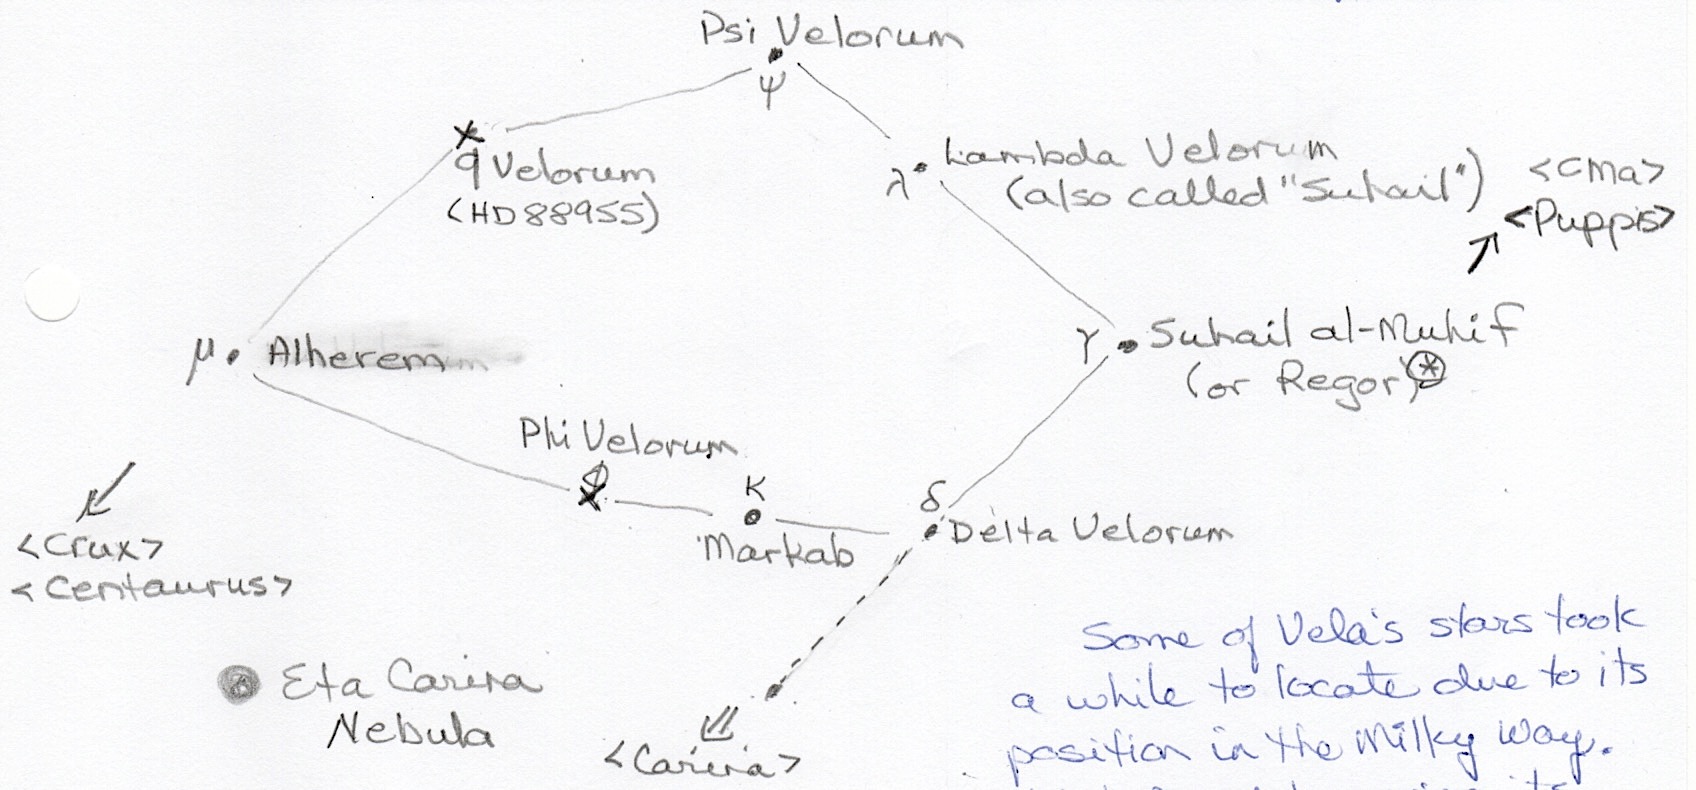 Psi Velorum
ψ
q Velorum
(HD 88955)
λ
Lambda Velorum
(also called "Suhail")
<CMa>
<Puppis>
γ
Suhail al-Muhif
(or Regor) *
μ
Alherem
Phi Velorum
φ
κ
Markab
δ
Delta Velorum
<Crux>
<Centaurus>
Eta Carina
Nebula
<Carina>
Some of Vela's stars took
a while to locate due to its
position in the Milky Way.
its